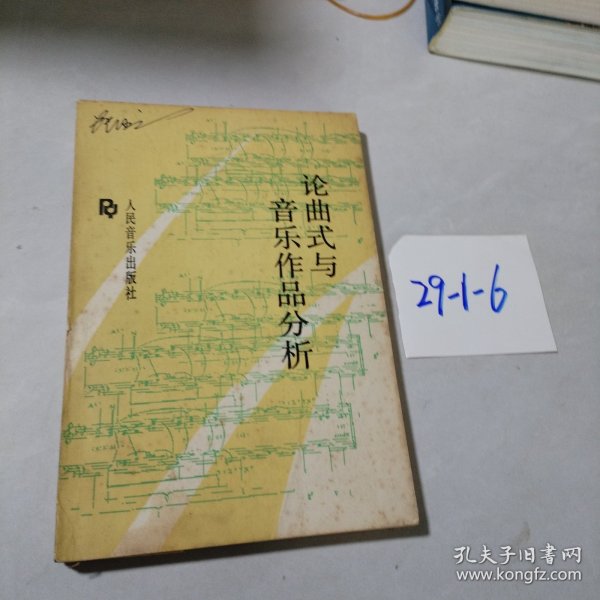 论曲式与
音乐作品分析
人民音乐出版社
29-1-6
孔夫子旧书网
www.kongfz.com